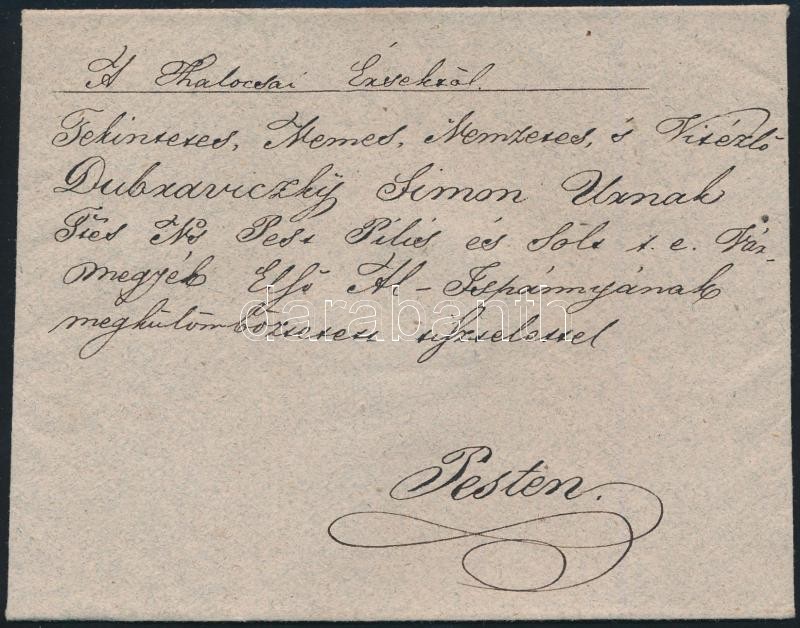 A Khalocsai Érsektől.
Tekintetes, Nemes, Nemzetes, s Vitézlő
Dubraviczky Simon Urnak
Ttes Ns Pest Pilis és Sólt t. e. Vár-
megyék Első Al-Ispánnyának
megkülömböztetett tisztelettel
darabanth
Pesten.